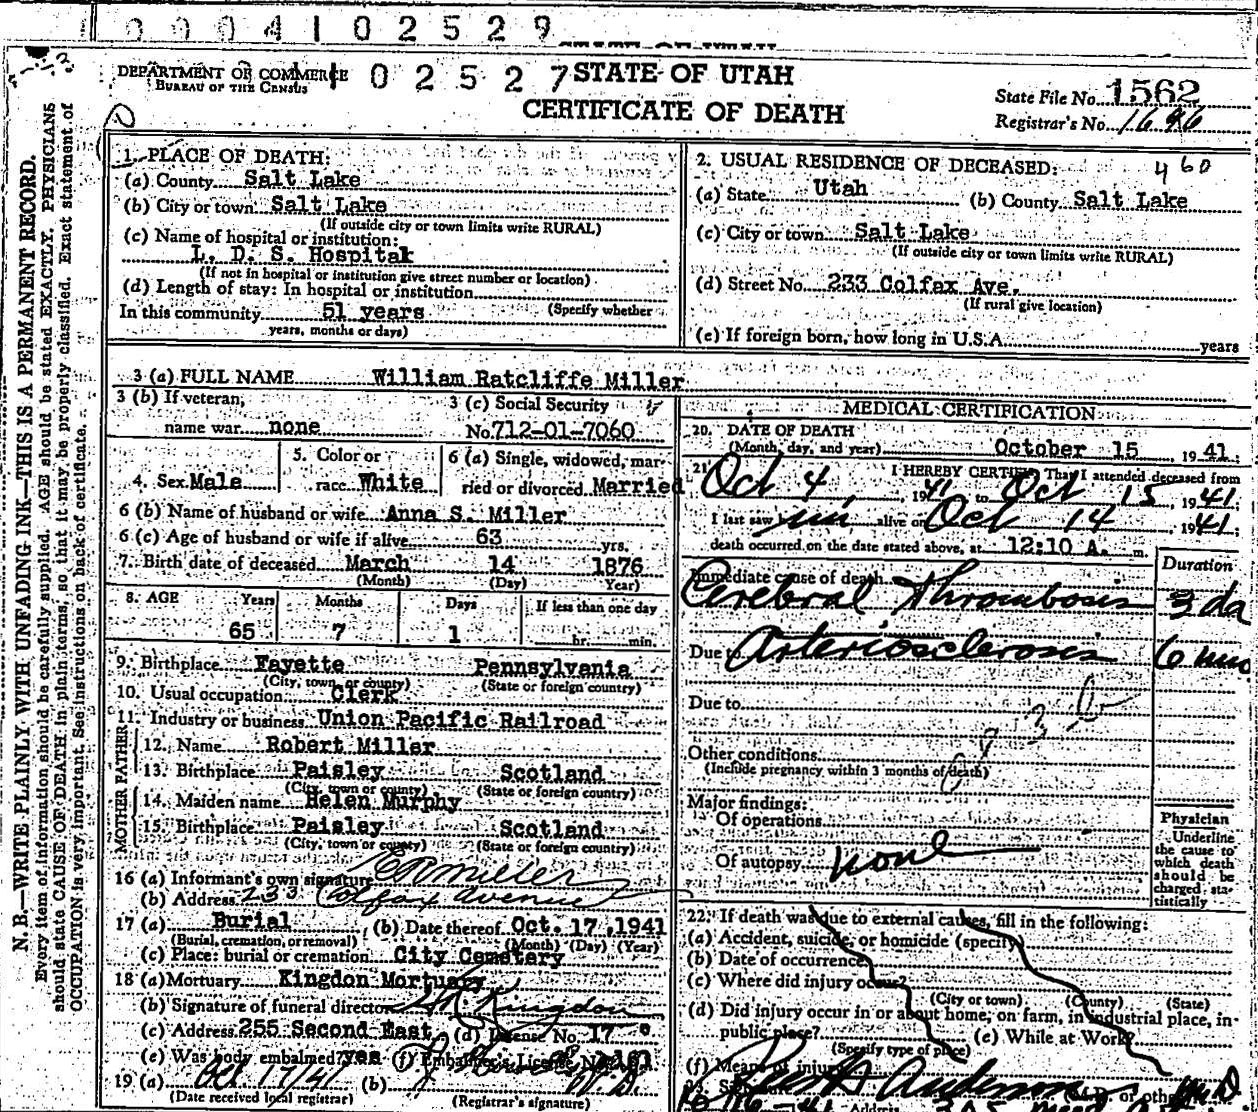 0 0 0 4 1 0 2 5 2 9
STATE OF UTAH
DEPARTMENT OF COMMERCE
BUREAU OF THE CENSUS
1 0 2 5 2 7
STATE OF UTAH
CERTIFICATE OF DEATH
State File No. 1562
Registrar's No. 1696
N. B.—WRITE PLAINLY WITH UNFADING INK—THIS IS A PERMANENT RECORD.
Every item of information should be carefully supplied. AGE should be stated EXACTLY. PHYSICIANS
should state CAUSE OF DEATH in plain terms, so that it may be properly classified. Exact statement of
OCCUPATION is very important. See instructions on back of certificate.
1. PLACE OF DEATH:
(a) County Salt Lake
(b) City or town Salt Lake
(If outside city or town limits write RURAL)
(c) Name of hospital or institution:
L. D. S. Hospital
(If not in hospital or institution give street number or location)
(d) Length of stay: In hospital or institution
In this community 51 years (Specify whether
years, months or days)
2. USUAL RESIDENCE OF DECEASED: 460
(a) State Utah (b) County Salt Lake
(c) City or town Salt Lake
(If outside city or town limits write RURAL)
(d) Street No. 233 Colfax Ave.
(If rural give location)
(e) If foreign born, how long in U.S.A. years
3 (a) FULL NAME William Ratcliffe Miller
3 (b) If veteran, name war none
3 (c) Social Security No. 712-01-7060
4. Sex Male
5. Color or race White
6 (a) Single, widowed, married or divorced Married
6 (b) Name of husband or wife Anna S. Miller
6 (c) Age of husband or wife if alive 63 yrs.
7. Birth date of deceased March 14 1876
(Month) (Day) Year)
8. AGE Years Months Days If less than one day
65 7 1 hr. min.
9. Birthplace Fayette Pennsylvania
(City, town, or county) (State or foreign country)
10. Usual occupation Clerk
11. Industry or business Union Pacific Railroad
FATHER
12. Name Robert Miller
13. Birthplace Paisley Scotland
(City, town or county) (State or foreign country)
MOTHER
14. Maiden name Helen Murphy
15. Birthplace Paisley Scotland
(City, town or county) (State or foreign country)
16 (a) Informant's own signature E R Miller
(b) Address 233 Colfax Avenue
17 (a) Burial (b) Date thereof Oct. 17, 1941
(Burial, cremation, or removal) (Month) (Day) (Year)
(c) Place: burial or cremation City Cemetery
18 (a) Mortuary Kingdon Mortuary
(b) Signature of funeral director Kingdon
(c) Address 255 Second East (d) License No. 17
(e) Was body embalmed? yes (f) Embalmer's License No.
19 (a) Oct 17/41 (b) M.D.
(Date received local registrar) (Registrar's signature)
MEDICAL CERTIFICATION
20. DATE OF DEATH
(Month, day, and year) October 15 1941.
21. I HEREBY CERTIFY That I attended deceased from
Oct 4, 1941 to Oct 15, 1941.
I last saw him alive on Oct 14 1941;
death occurred on the date stated above, at 12:10 A. m.
Duration
Immediate cause of death
Cerebral Thrombosis 3 da
Due to Arteriosclerosis 6 mo
Due to
Other conditions
(Include pregnancy within 3 months of death)
Major findings:
Of operations
Of autopsy none
Physician
Underline
the cause to
which death
should be
charged sta-
tistically
22. If death was due to external causes, fill in the following:
(a) Accident, suicide, or homicide (specify)
(b) Date of occurrence
(c) Where did injury occur?
(City or town) (County) (State)
(d) Did injury occur in or about home, on farm, in industrial place, in
public place? (e) While at Work?
(Specify type of place)
(f) Means of injury
Anderson M.D. or other M.D.
Address